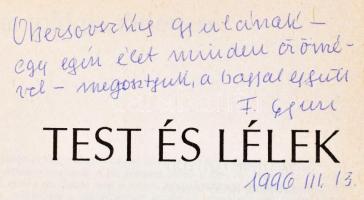 Obersovszky Gyulának –
egy egész élet minden örömé-
vel – megosztjuk, a bajjal együtt
F. Gyuri
TEST ÉS LÉLEK
1996 III. 13.